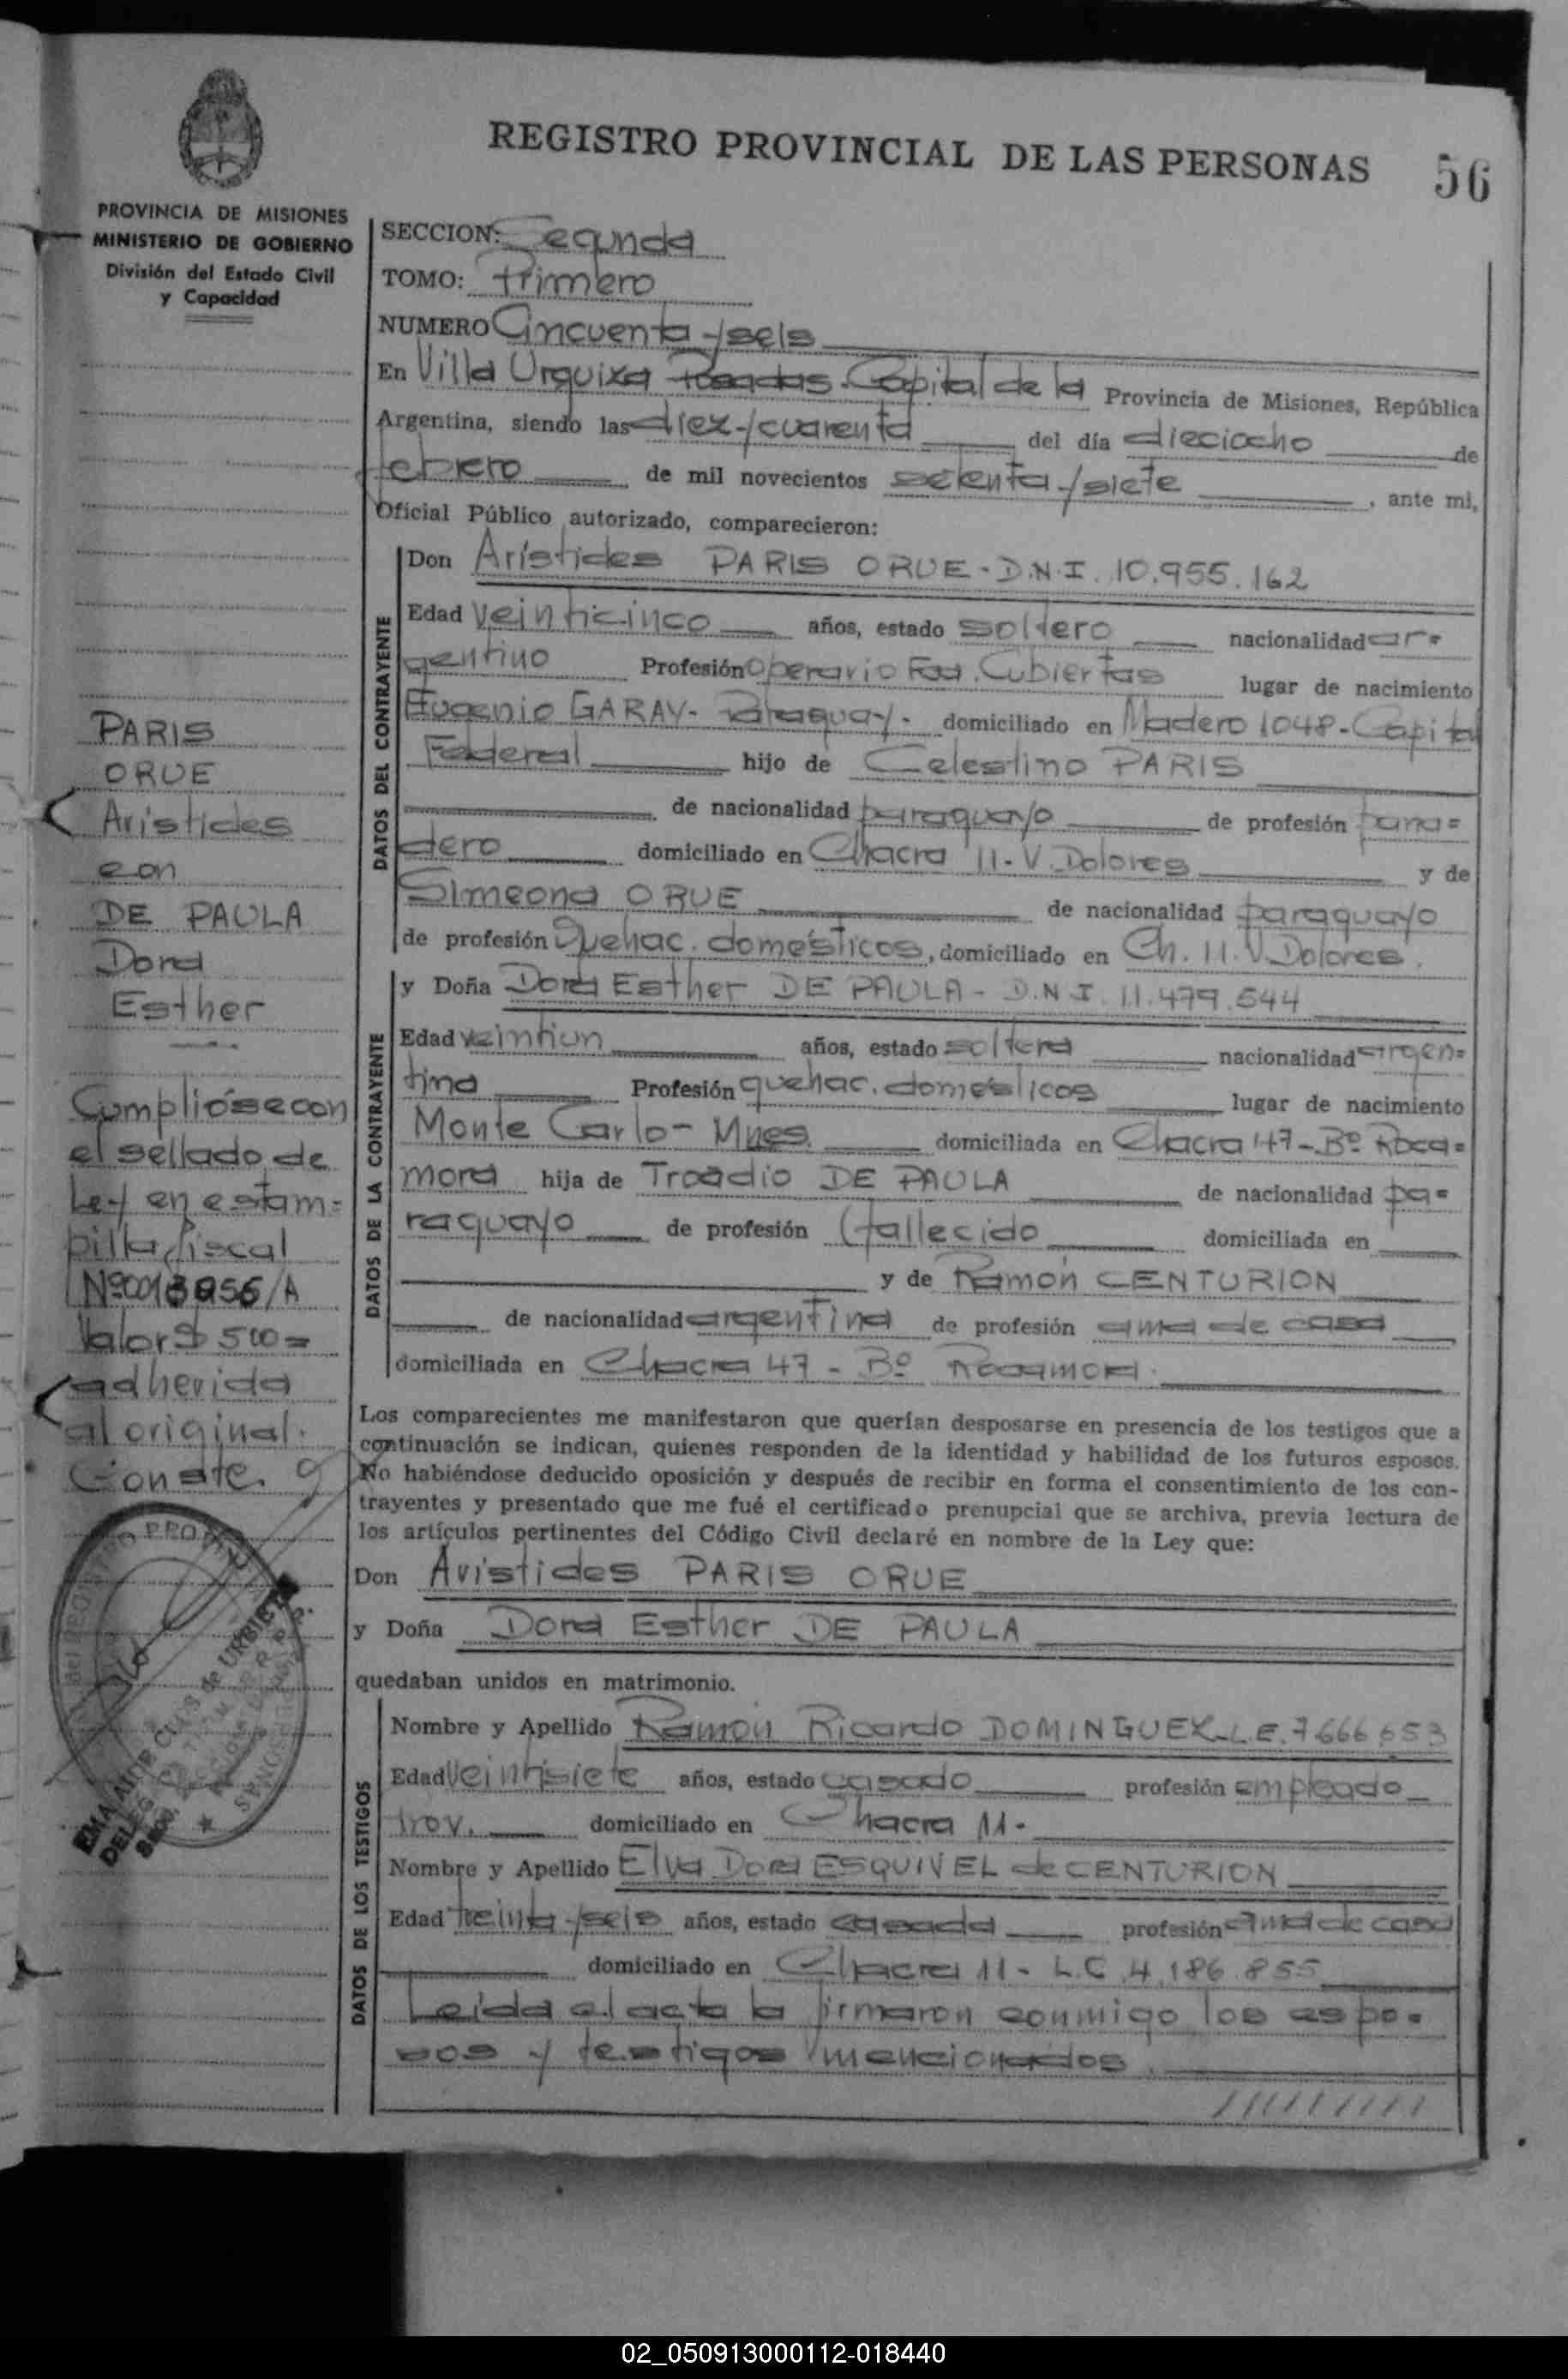 REGISTRO PROVINCIAL DE LAS PERSONAS 56
PROVINCIA DE MISIONES
MINISTERIO DE GOBIERNO
División del Estado Civil
y Capacidad
PARIS
ORUE
Aristides
con
DE PAULA
Dora
Esther
Cumplióse con
el sellado de
Ley en estam=
pilla fiscal
Nº
Valor $ 500=
adherida
al original.
Conste.
SECCION: Segunda
TOMO: Primero
NUMERO Cincuenta y seis
En Villa Urquiza Posadas. Capital de la Provincia de Misiones, República
Argentina, siendo las diez y cuarenta del día dieciocho de
febrero de mil novecientos setenta y siete, ante mi,
Oficial Público autorizado, comparecieron:
DATOS DEL CONTRAYENTE
Don Aristides PARIS ORUE - D.N.I. 10.955.162
Edad veinticinco años, estado soltero nacionalidad ar=
gentino Profesión Operario Fca. Cubiertas lugar de nacimiento
Eugenio GARAY - Paraguay - domiciliado en Madero 1048 - Capital
Federal hijo de Celestino PARIS
de nacionalidad paraguayo de profesión pana=
dero domiciliado en Chacra 11 - V. Dolores y de
Simeona ORUE de nacionalidad paraguayo
de profesión Quehac. domésticos, domiciliado en Ch. 11. V. Dolores.
DATOS DE LA CONTRAYENTE
y Doña Dora Esther DE PAULA - D.N.I. 11.479.544
Edad veintiun años, estado soltera nacionalidad argen=
tina Profesión quehac. domésticos lugar de nacimiento
Monte Carlo - Mnes. domiciliada en Chacra 47 - Bº Roca=
mora hija de Troadio DE PAULA de nacionalidad pa=
raguayo de profesión (fallecido domiciliada en
y de Ramón CENTURION
de nacionalidad argentina de profesión ama de casa
domiciliada en Chacra 47 - Bº Rocamora.
Los comparecientes me manifestaron que querían desposarse en presencia de los testigos que a
continuación se indican, quienes responden de la identidad y habilidad de los futuros esposos.
No habiéndose deducido oposición y después de recibir en forma el consentimiento de los con-
trayentes y presentado que me fué el certificado prenupcial que se archiva, previa lectura de
los artículos pertinentes del Código Civil declaré en nombre de la Ley que:
Don Aristides PARIS ORUE
y Doña Dora Esther DE PAULA
quedaban unidos en matrimonio.
DATOS DE LOS TESTIGOS
Nombre y Apellido Ramón Ricardo DOMINGUEZ - L.E. 7.666.653
Edad veintisiete años, estado casado profesión empleado
Prov. domiciliado en Chacra 11 -
Nombre y Apellido Elva Dora ESQUIVEL de CENTURION
Edad treinta y seis años, estado casada profesión ama de casa
domiciliado en Chacra 11 - L.C. 4.186.855
Leida el acta la firmaron conmigo los espo=
sos y testigos mencionados.
02_050913000112-018440